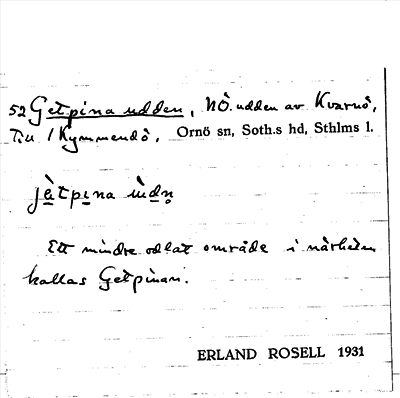 52 Getpina udden, NÖ. udden av Kvarnö,
Till 1 Kymmendö, Ornö sn, Soth.s hd, Sthlms l.
jè̱tpi̱na ùdn̥
Ett mindre odlat område i närheten
kallas Getpinan.
ERLAND ROSELL 1931